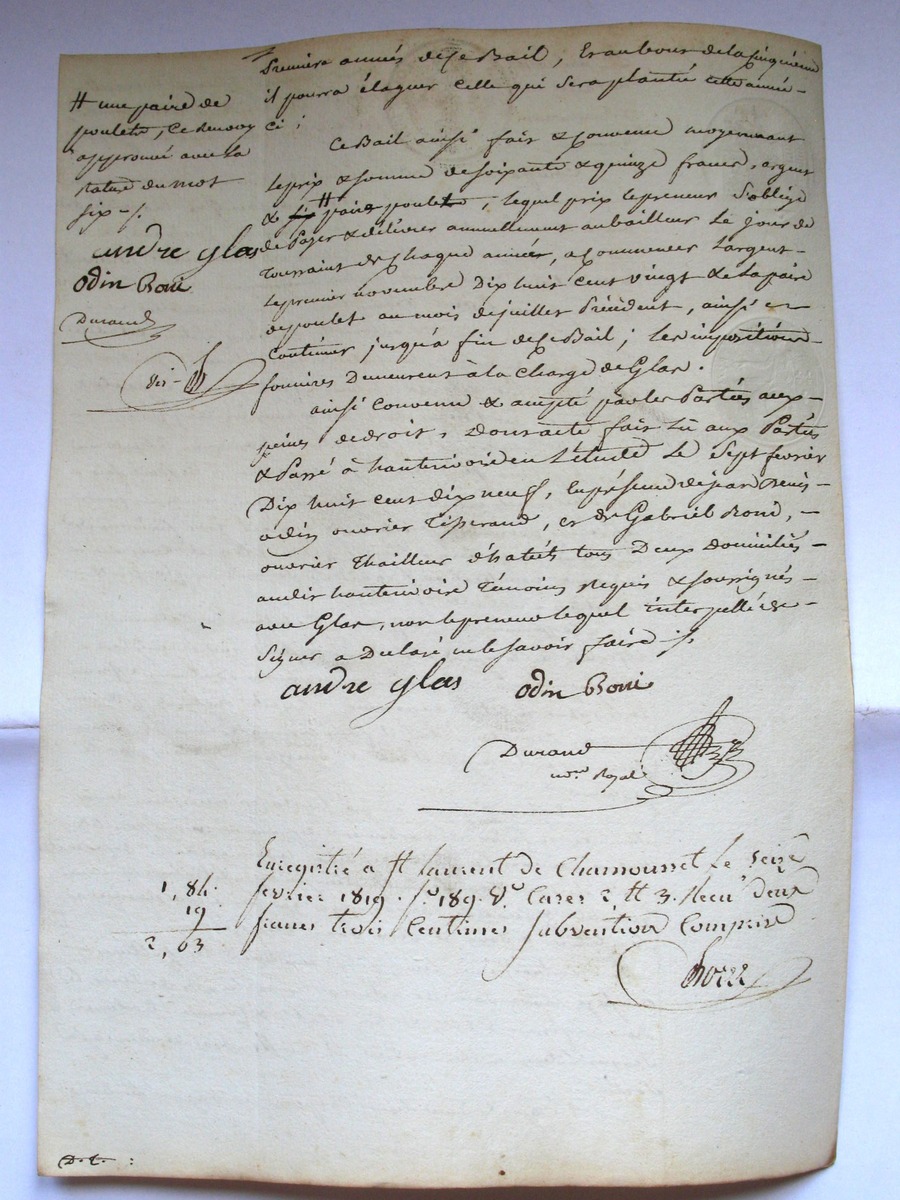 # une paire de
poulets, ce renvoy
approuvé avec la
rature du mot
six -/.
andre glas
odin Roni
Durand
premiere années de ce Bail, Et au bout de la cinquieme
il pourra élaguer celle qui sera planté cette année -
ci ;
Ce Bail ainsi fait & convenu moyennant
le prix & somme de soixante & quinze francs, argent
& six # paires poulets, lequel prix le preneur s'oblige
de payer & délivrer annuellement au bailleur Le jour de
toussaint de chaque année, a commencer l'argent -
le premier novembre Dix huit cent vingt & la paire
de poulet au mois de juillet précédent, ainsi &
continuer jusqu'a fin de ce Bail ; les impositions
foncières Demeurent à la charge de Glas.
ainsi convenu & accepté par les Parties aux -
peines de droit, Dont acte fait Lu aux Parties
& Passé à hauterivoire en L'étude Le Sept fevrier
Dix huit cent dix neuf, En présence de jean Denis -
odin ouvrier Tisserand, et de Gabriel Rond, -
ouvrier thailleur d'habits tous Deux Domiciliés -
audit hauterivoire Témoins Requis & soussignés -
avec Glas, non le preneur lequel interpellé de -
signer a Déclaré ne le savoir faire ./.
andre glas odin Roni
Durand
nore Royal
Enregistré a St laurent de Chamousset le seize
fevrier 1819. fo 189. Vo. Cases 2, et 3. Recu deux
francs trois Centimes subvention Comprise
1, 84
19
2, 03
D. t. :